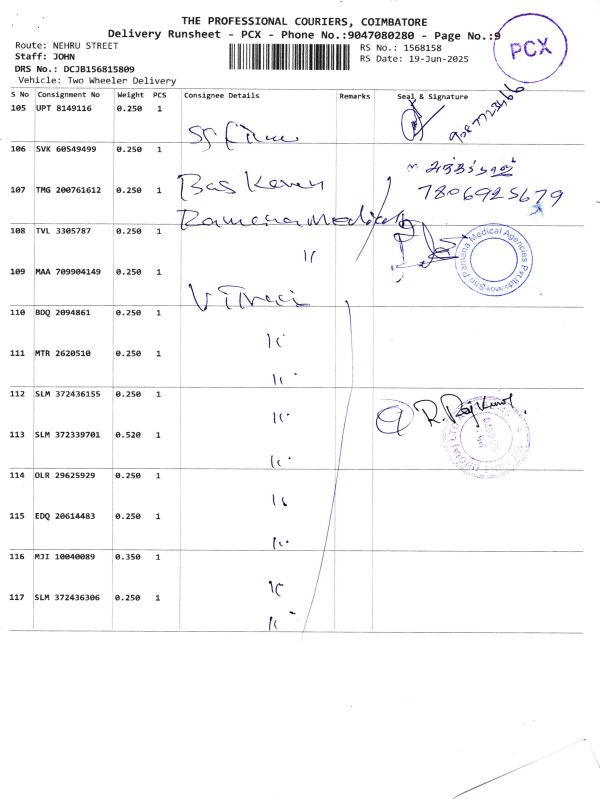 THE PROFESSIONAL COURIERS, COIMBATORE
Delivery Runsheet - PCX - Phone No.:9047080280 - Page No.:9
PCX
Route: NEHRU STREET
Staff: JOHN
DRS No.: DCJB156815809
Vehicle: Two Wheeler Delivery
RS No.: 1568158
RS Date: 19-Jun-2025
S No Consignment No Weight PCS Consignee Details Remarks Seal & Signature
105 UPT 8149116 0.250 1
106 SVK 60549499 0.250 1
107 TMG 200761612 0.250 1 Baskaran
7806925679
Ramana Medical
108 TVL 3305787 0.250 1
"
Medical Agencies Pvt.
109 MAA 709904149 0.250 1
110 BDQ 2094861 0.250 1
"
111 MTR 2620510 0.250 1
"
112 SLM 372436155 0.250 1
"
R. Rajkumar
113 SLM 372339701 0.520 1
"
114 OLR 29625929 0.250 1
"
115 EDQ 20614483 0.250 1
"
116 MJI 10040089 0.350 1
"
117 SLM 372436306 0.250 1
"